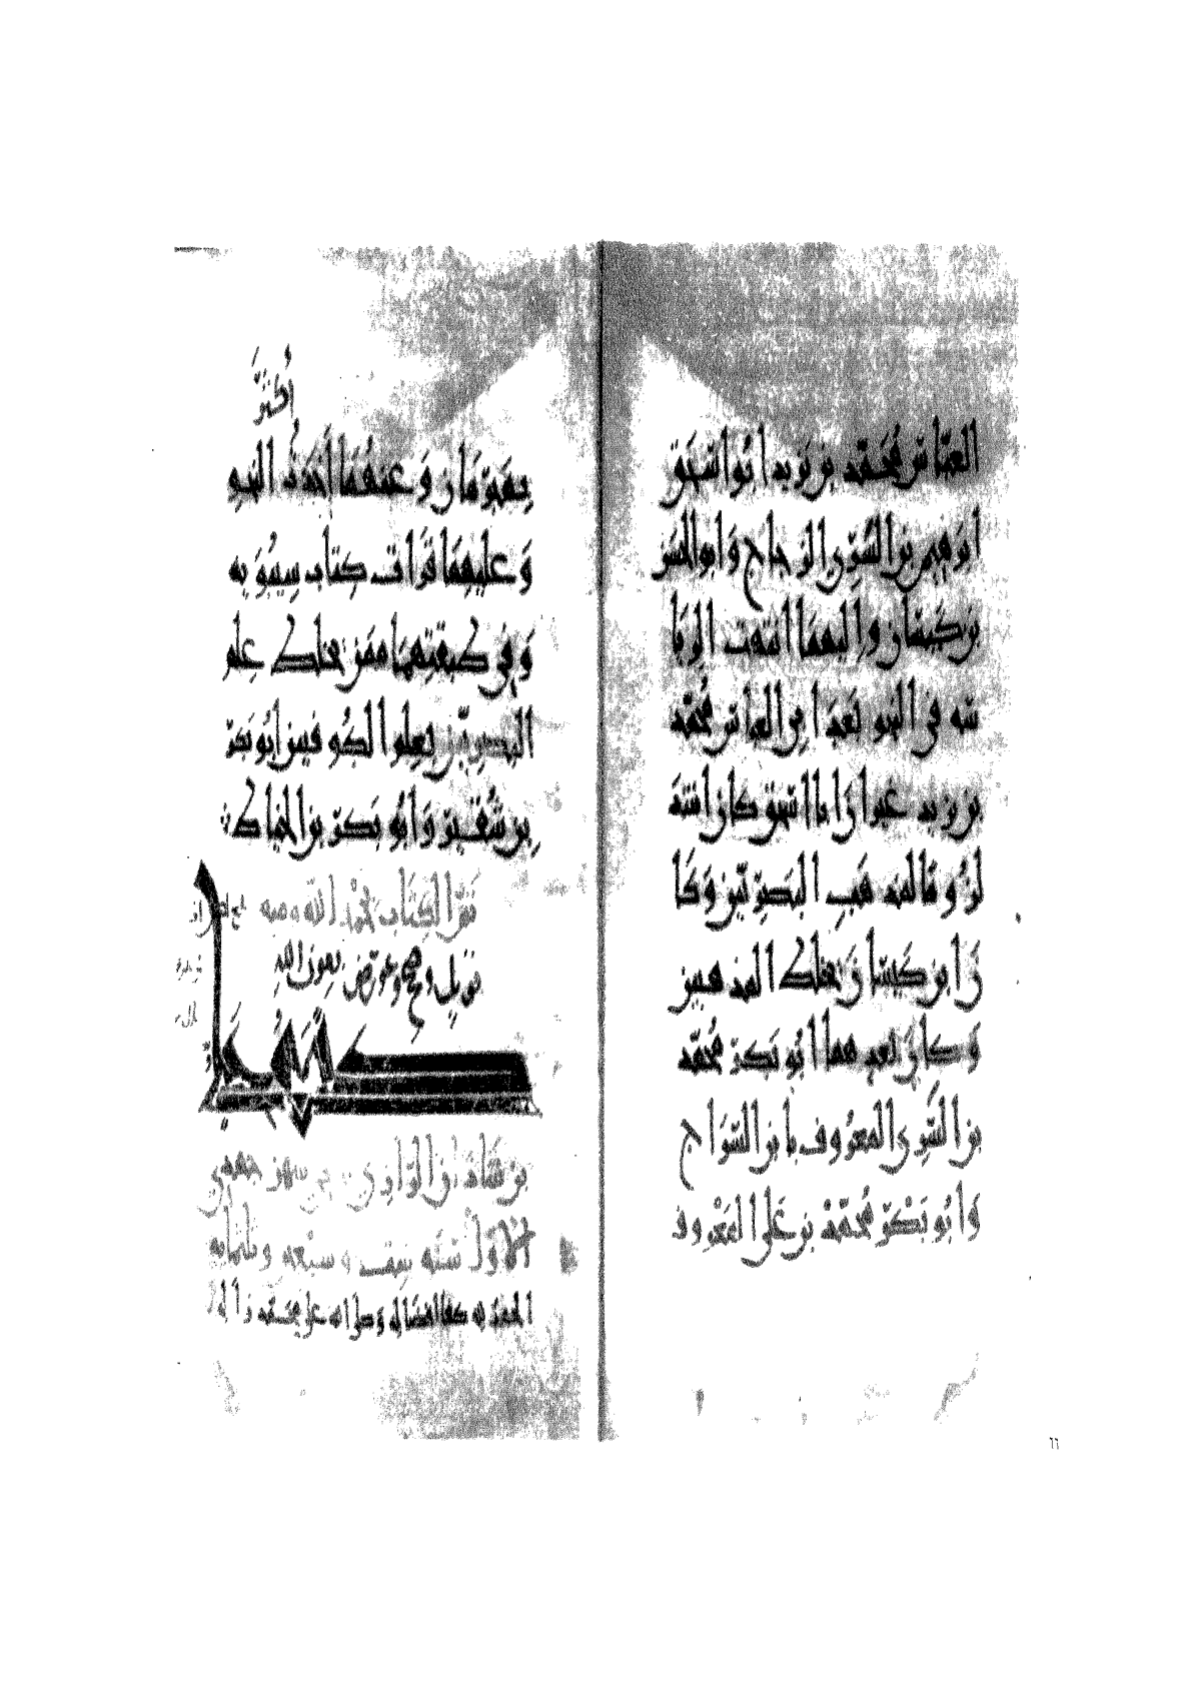 العباس محمد بن يزيد ابو اسحق
ابرهيم بن السري الزجاج وابو الحسن
بن كيسان واليهما انتهت الريا
سه في النحو بعد ابي العباس محمد
بن يزيد غير ان ابا اسحق كان اشد
لزوما لمذهب البصريين وكا
ن ابن كيسان يخلط المذهبين
وكان بعدهما ابو بكر محمد
بن السري المعروف بابن السراج
وابو بكر محمد بن علي المعروف
بمبرمان وعنهما أخذت النحو
أكثر
وعليهما قرات كتاب سيبويه
وفي طبقتهما ممن يخلط علم
البصريين بعلم الكوفيين أبو بكر
بن شقير وابو بكر بن الخياط
تم الكتاب بحمد الله ومنه
قوبل وصحح وعورض بعون الله
كتبه علي
بن شاذان الرازي في شهر جمدى
الاولى سنه ست وسبعين وثلثمايه
الحمد لله كفا افضاله وصلواته على محمد واله